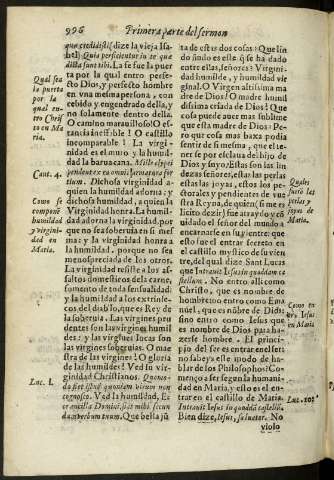 996
Primera parte del sermon
que credidisti (dize la vieja Isa
bel) Quia perficientur in te quæ
dicta sunt tibi. La fe fue la puer
ta por la qual entro perfecto
Dios, y perfecto hombre
en vna mesma persona, con
cebido y engendrado della, y
no solamente dentro della.
O camino marauilloso! O es
tancia ineffable! O castillo
incomparable! La virgini-
dad es el muro y la humil
dad la baruacana. Mille clypei
pendent ex ea omnis armatura for
tium. Dichosa virginidad a-
quien la humildad adorna; y
dichosa humildad, a quien la
Virginidad honra. La humil
dad adorna la virginidad, por
que no sea soberuia en si mes-
ma: y la virginidad honra a
la humildad, porque no sea
menospreciada de los otros.
La virginidad resiste a los as-
saltos domesticos de la carne,
fomento de toda sensualidad;
y la humildad a los extrinse-
cos del diablo, que es Rey de
la soberuia. Las virgines pru
dentes son las virgines humil
des: y las virgines locas son
las virgines soberuias. O mu
estra de las virgines! O gloria
de las humildes! Ved su vir
ginidad Christianos. Quomo-
do fiet istud quoniam virum non
cognosco. Ved la humildad, Ec
ce ancilla Domini, fiat mihi secun
dum verbum tuum. Que bella ju
Qual sea
la puerta
por la
qual en-
tro Chris
to en Ma
ria.
Cant. 4.
Como se
compone
humildad
y virgini-
dad en
Maria.
Luc. 1.
ta de estas dos cosas! Que lin
do ñudo es este q̃ se ha dado
entre ellas, señores! Virgini-
dad humilde, y humildad vir
ginal. O Virgen altissima ma
dre de Dios! O madre humil
dissima criada de Dios! Que
cosa puede auer mas sublime
que esta madre de Dios? Pe-
ro que cosa mas baxa podia
sentir de si mesma, que el te-
ner se por esclaua del hijo de
Dios y suyo? Estas son las lin
dezas señores, estas las perlas
estas las joyas, estos los pe-
ctorales y pendientes de vue
stra Reyna, de quien (si me es
licito dezir) fue atraydo y co
diciado el señor del mundo a
encarnarse en su vientre: que
esto fue el entrar secreto en
el castillo mystico de su vien
tre, del qual dize Sant Lucas
que Intrauit Iesus in quoddam ca
stellum. No entro alli como
Christo, que es nombre de
hombre: no entro como Ema
nuel, que es nõbre de Dios: si
no entro como Iesus que
es nombre de Dios para ha-
zerse hombre. El princi-
pio del ser es entrar en el ser:
no sabeys este modo de ha-
blar de los Philosophos? Co-
mença a ser segun la humani-
dad en Maria, y esto es el en-
trar en el castillo de Maria.
Intrauit Iesus in quoddã castellũ.
Bien dize, Iesus, saluator. No
violo
Quales
sean las
perlas y
joyas de
Maria.
Como en
tro Iesus
en Maria
Luc. 10.